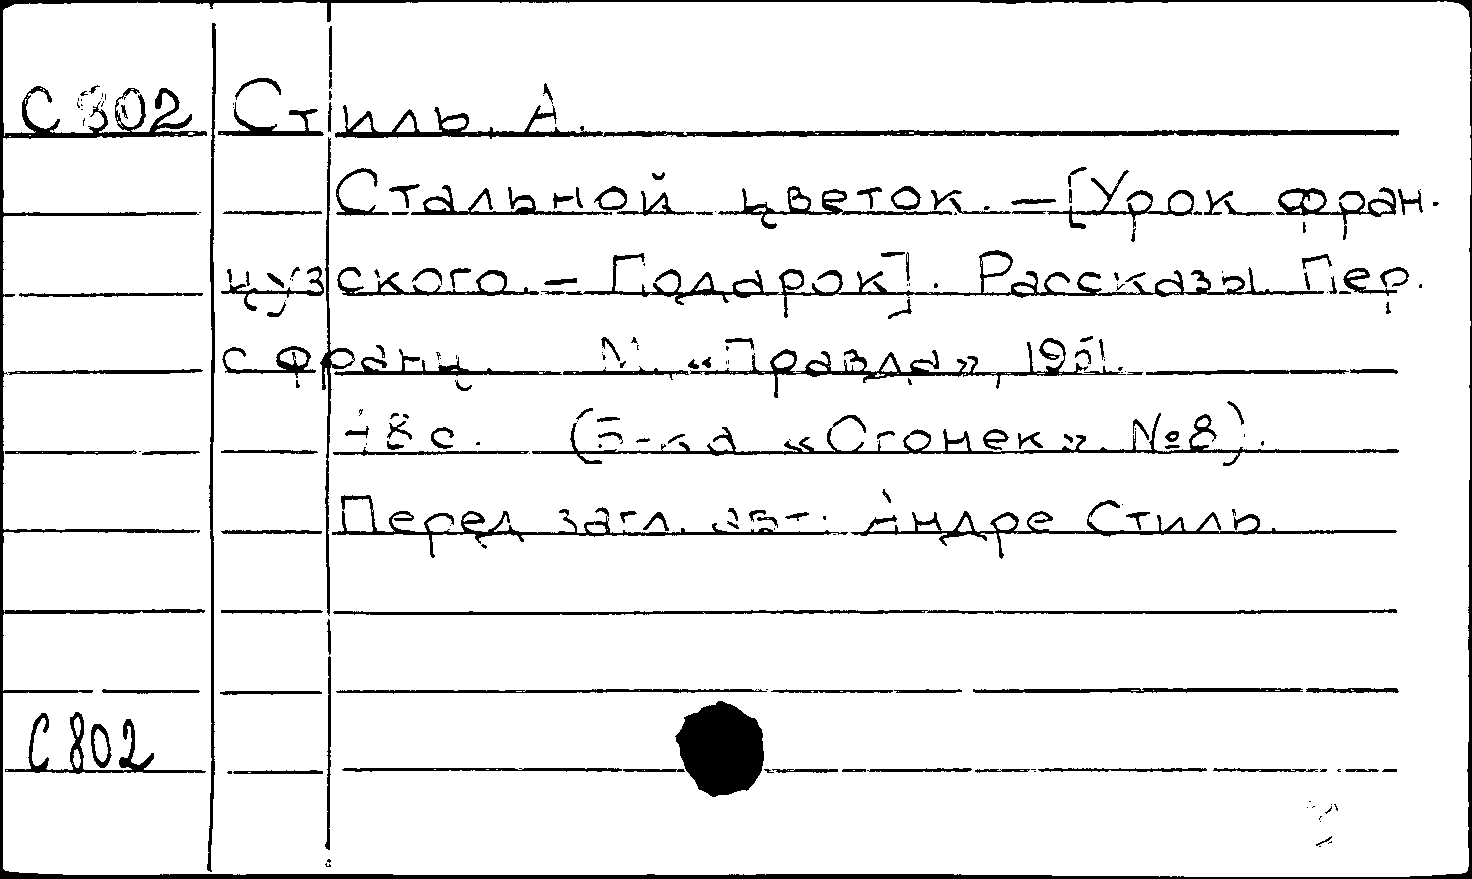 С802 Стиль, А.
Стальной цветок. — [Урок фран-
цузского. — Подарок]. Рассказы. Пер.
с франц. М., «Правда», 1951.
48 с. (Б-ка «Огонек». №8).
Перед загл. авт.: Андре Стиль.
С802